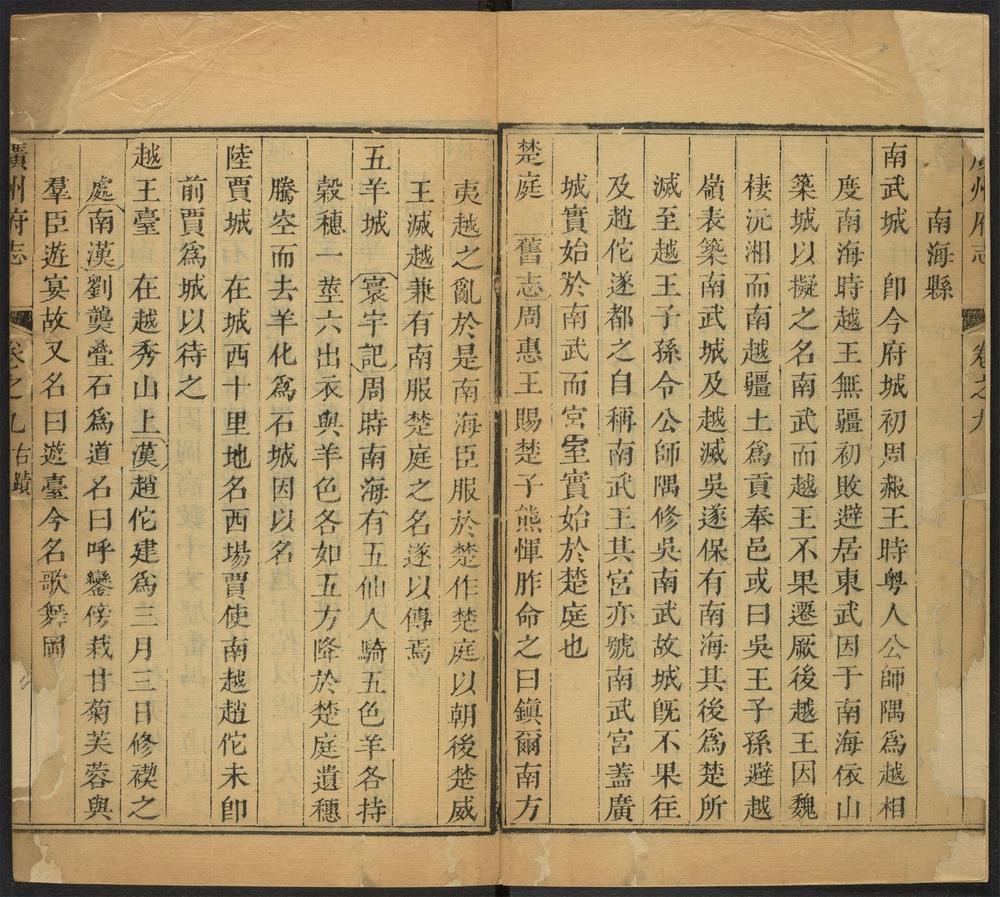 廣州府志 卷之九
南海縣
南武城 卽今府城初周赧王時粤人公師隅爲越相
度南海時越王無疆初敗避居東武因于南海依山
築城以擬之名南武而越王不果遷厥後越王因魏
棲沅湘而南越疆土爲貢奉邑或曰吳王子孫避越
嶺表築南武城及越滅吳遂保有南海其後爲楚所
滅至越王子孫令公師隅修吳南武故城旣不果徃
及趙佗遂都之自稱南武王其宮亦號南武宮蓋廣
城實始於南武而宮室實始於楚庭也
楚庭 舊志周惠王賜楚子熊惲胙命之曰鎮爾南方
夷越之亂於是南海臣服於楚作楚庭以朝後楚威
王滅越兼有南服楚庭之名遂以傳焉
五羊城 寰宇記周時南海有五仙人騎五色羊各持
穀穗一莖六出衣與羊色各如五方降於楚庭遺穗
騰空而去羊化爲石城因以名
陸賈城 在城西十里地名西場賈使南越趙佗未卽
前賈爲城以待之
越王臺 在越秀山上漢趙佗建爲三月三日修禊之
處南漢劉龑疊石爲道名曰呼鑾傍栽甘菊芙蓉與
羣臣遊宴故又名曰遊臺今名歌舞岡
廣州府志 卷之九 古蹟